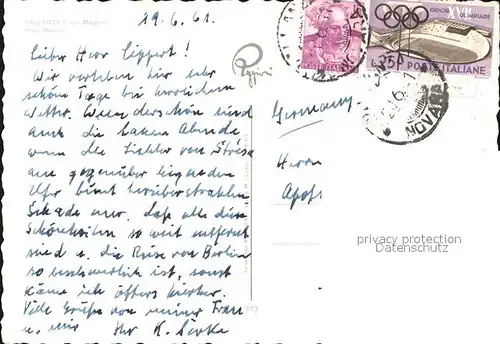 19.6.61.
Lieber Herr Lippert!
Wir verleben hier sehr
schöne Tage bei herrlichem
Wetter. Wunderschön sind
auch die lauen Abende
wenn die Lichter von Stresa
am gegenüber liegenden
Ufer bunt herüberstrahlen
Schade nur, daß alle diese
Schönheiten so weit entfernt
sind u. die Reise von Berlin
so beschwerlich ist, sonst
käme ich öfters hierher.
Viele Grüße von meiner Frau
u. mir Ihr K.
Germany
Herrn
GIOCHI XVII OLIMPIADE
L. 25
POSTE ITALIANE
POSTE ITALIANE
NOVARA
privacy protection
Datenschutz